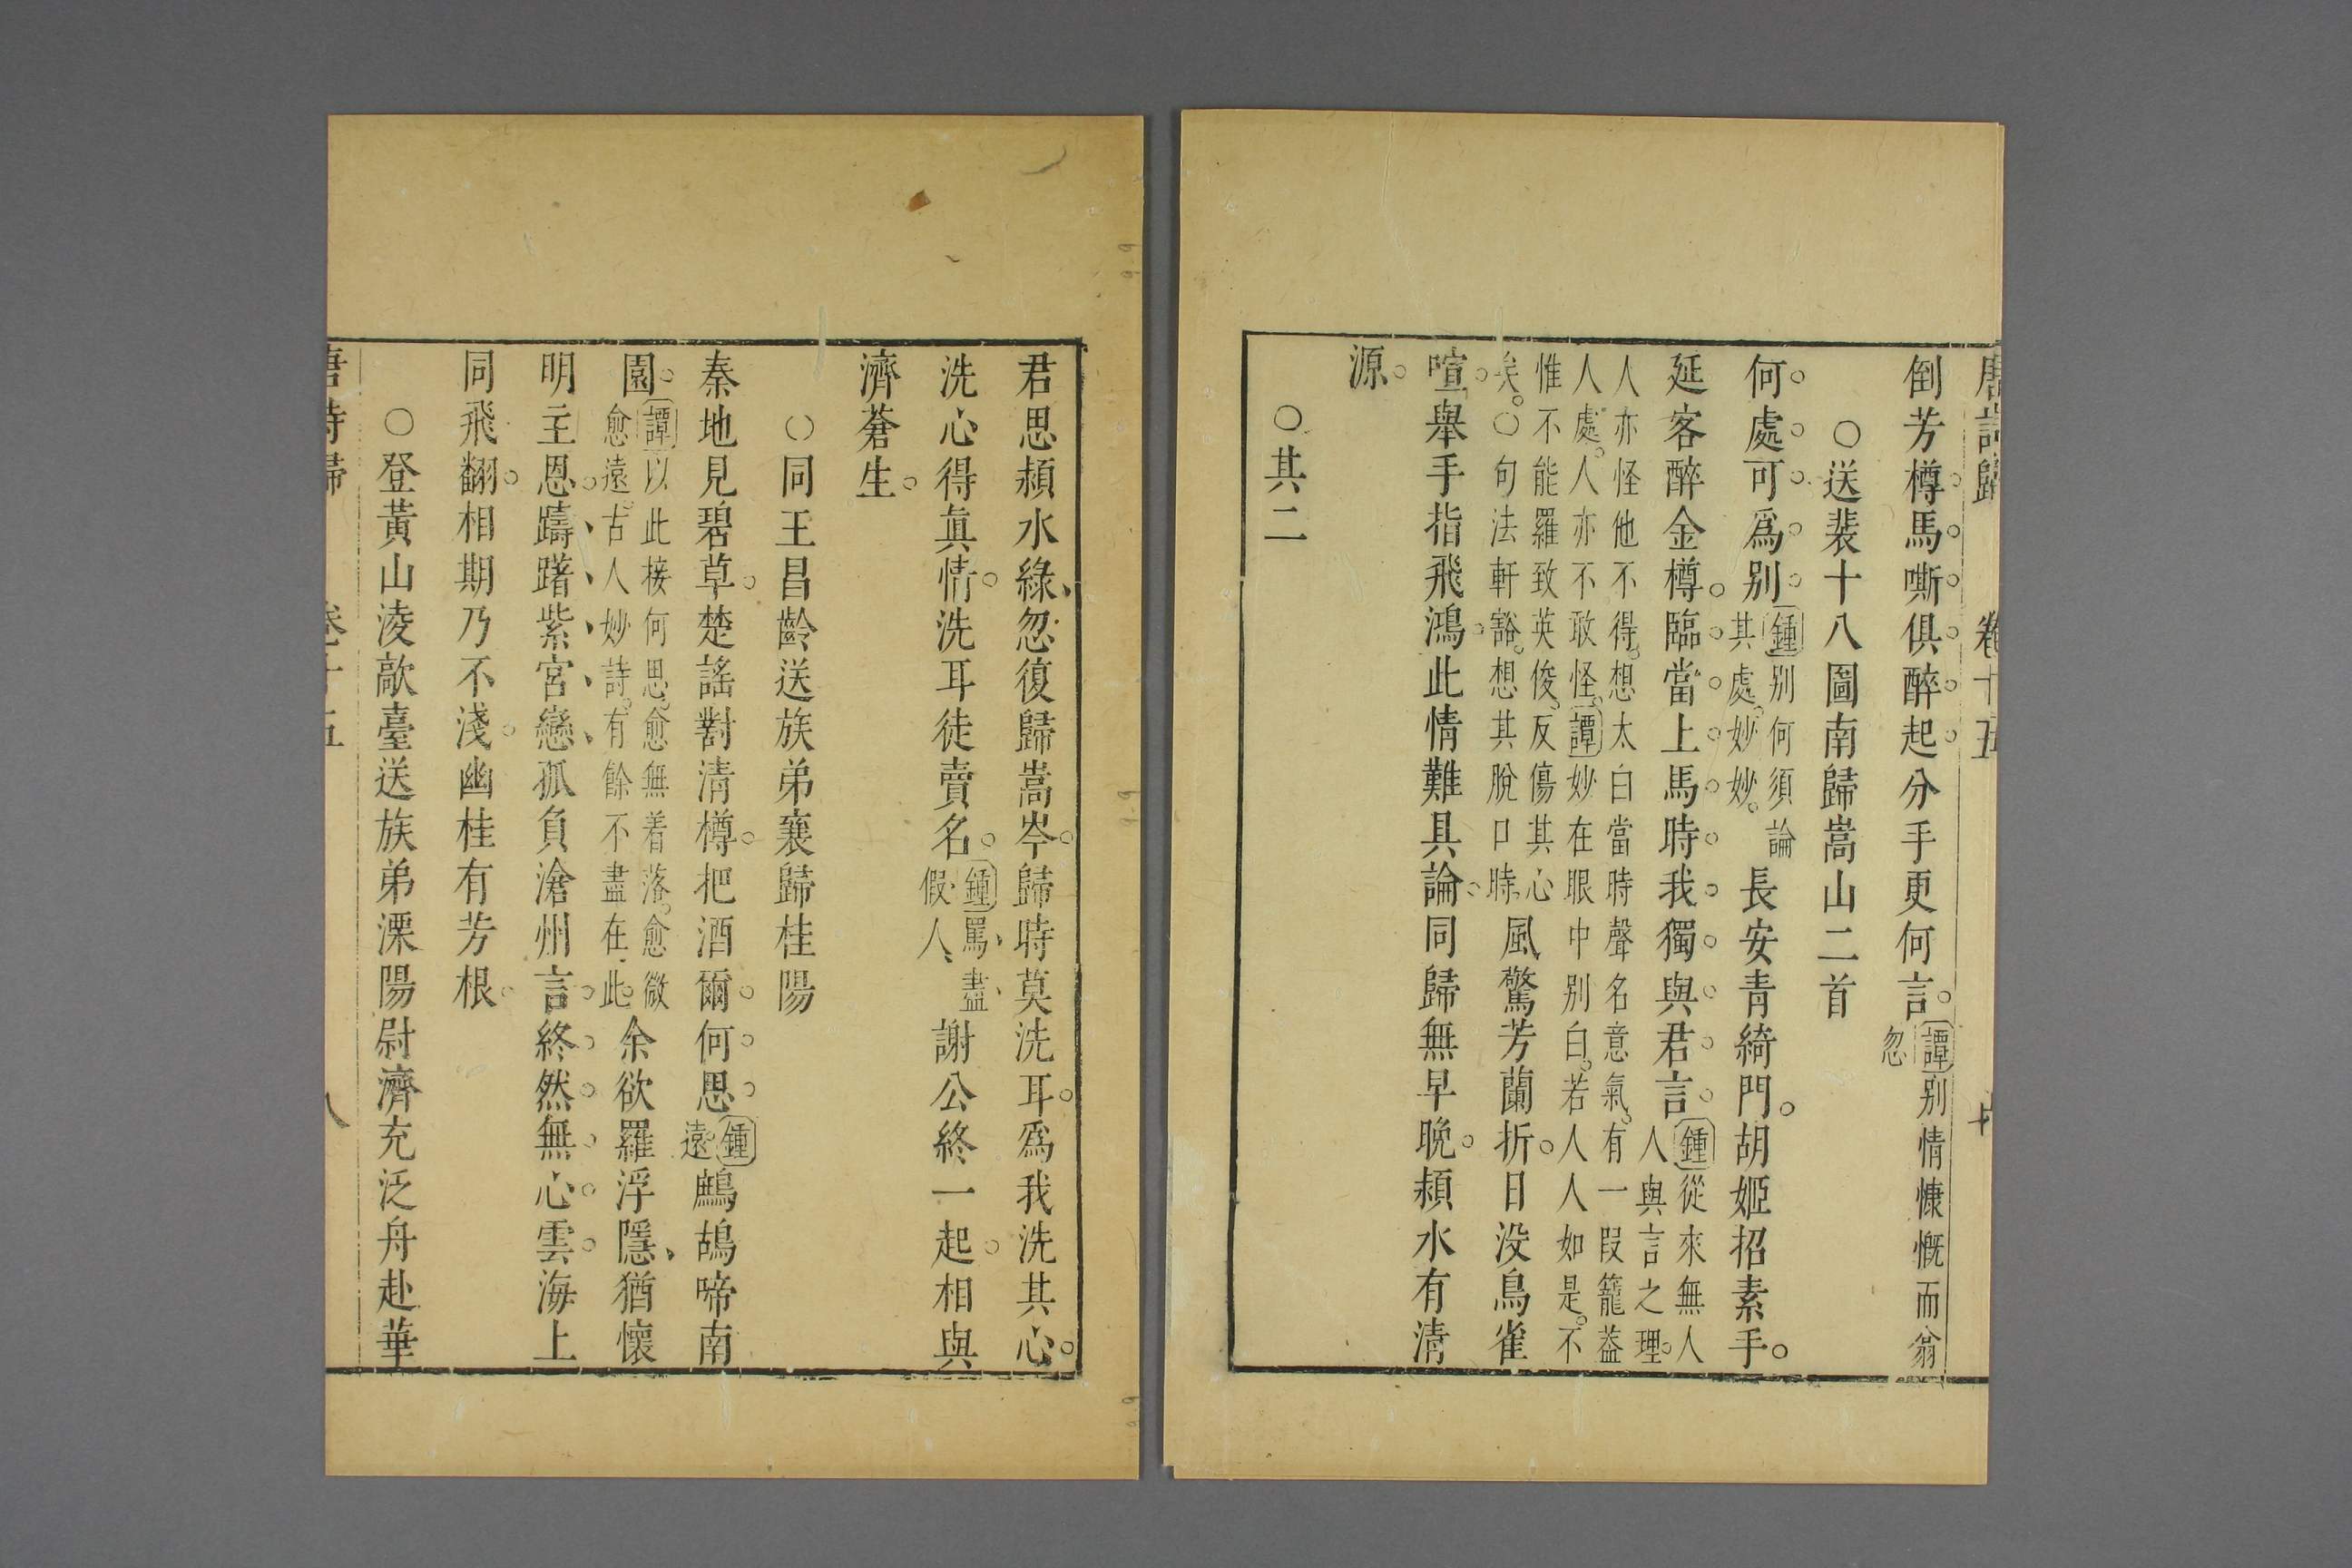 唐詩歸 卷十五 七
倒芳樽馬嘶俱醉起分手更何言。譚别情慷慨而翁
忽
○送裴十八圖南歸嵩山二首
何處可爲别鍾别何須論
其處。妙妙。
長安青綺門。胡姬招素手。
延客醉金樽。臨當上馬時我獨與君言鍾從來無人
人與言之理。
人亦怪他不得。想太白當時聲名意氣。有一段籠葢
人處。人亦不敢怪。譚妙在眼中别白。若人人如是。不
惟不能羅致英俊。反傷其心
矣。○句法軒豁。想其脫口時。
風驚芳蘭折。日没鳥雀
喧。舉手指飛鴻。此情難具論。同歸無早晩。潁水有清
源。
○其二
君思潁水綠忽復歸嵩岑。歸時莫洗耳。爲我洗其心。
洗心得眞情。洗耳徒賣名。鍾罵盡
假人
謝公終一起。相與
濟蒼生。
○同王昌齡送族弟襄歸桂陽
秦地見碧草。楚謠對清樽。把酒爾何思鍾
遠
鷓鴣啼南
園。譚以此接何思。愈無着落。愈微
愈遠。古人妙詩。有餘不盡在此。
余欲羅浮隱猶懷
明主恩。躊躇紫宮戀孤負滄州言。終然無心雲海上
同飛翻。相期乃不淺。幽桂有芳根。
○登黃山淩歊臺送族弟溧陽尉濟充泛舟赴華
唐詩歸 卷十五 八